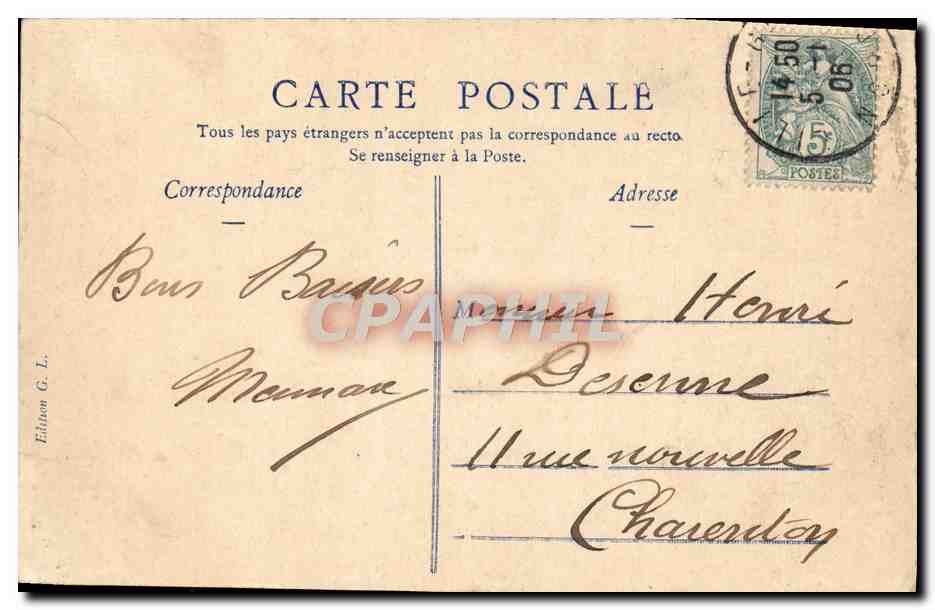 CARTE POSTALE
Tous les pays étrangers n'acceptent pas la correspondance au recto
Se renseigner à la Poste.
Correspondance
Adresse
14 50
5 -1
06
5c
POSTES
Bons Baisers
Monsieur Henri
Desenne
11 rue nouvelle
Charenton
CPAPHIL
Edition G. L.